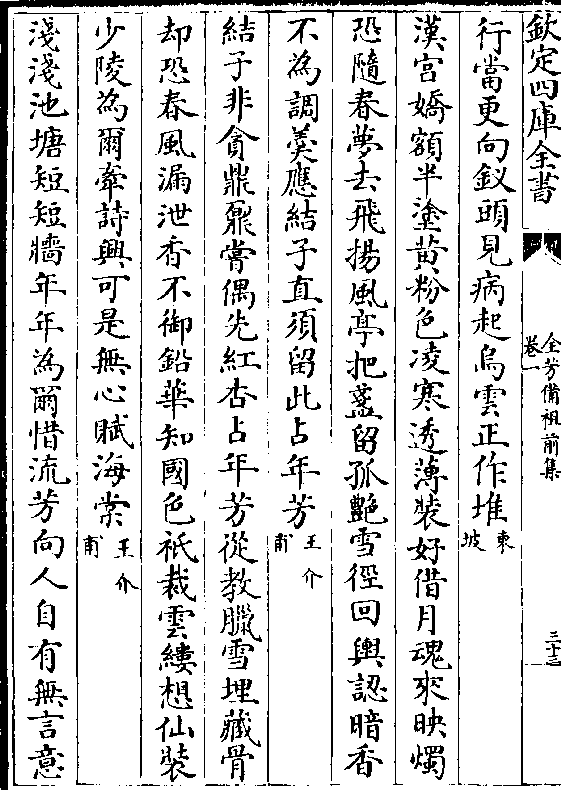 欽定四庫全書
全芳備祖前集
卷一
三十三
行當更向釵頭見病起烏雲正作堆東坡
漢宮嬌額半塗黃粉色凌寒透薄裝好借月魂來映燭
恐隨春夢去飛揚風亭把盞留孤艷雪徑回輿認暗香
不為調羹應結子直須留此占年芳王介甫
結子非貪鼎鼐嘗偶先紅杏占年芳從教臘雪埋藏骨
却恐春風漏泄香不御鉛華知國色祇裁雲縷想仙裝
少陵為爾牽詩興可是無心賦海棠王介甫
淺淺池塘短短牆年年為爾惜流芳向人自有無言意